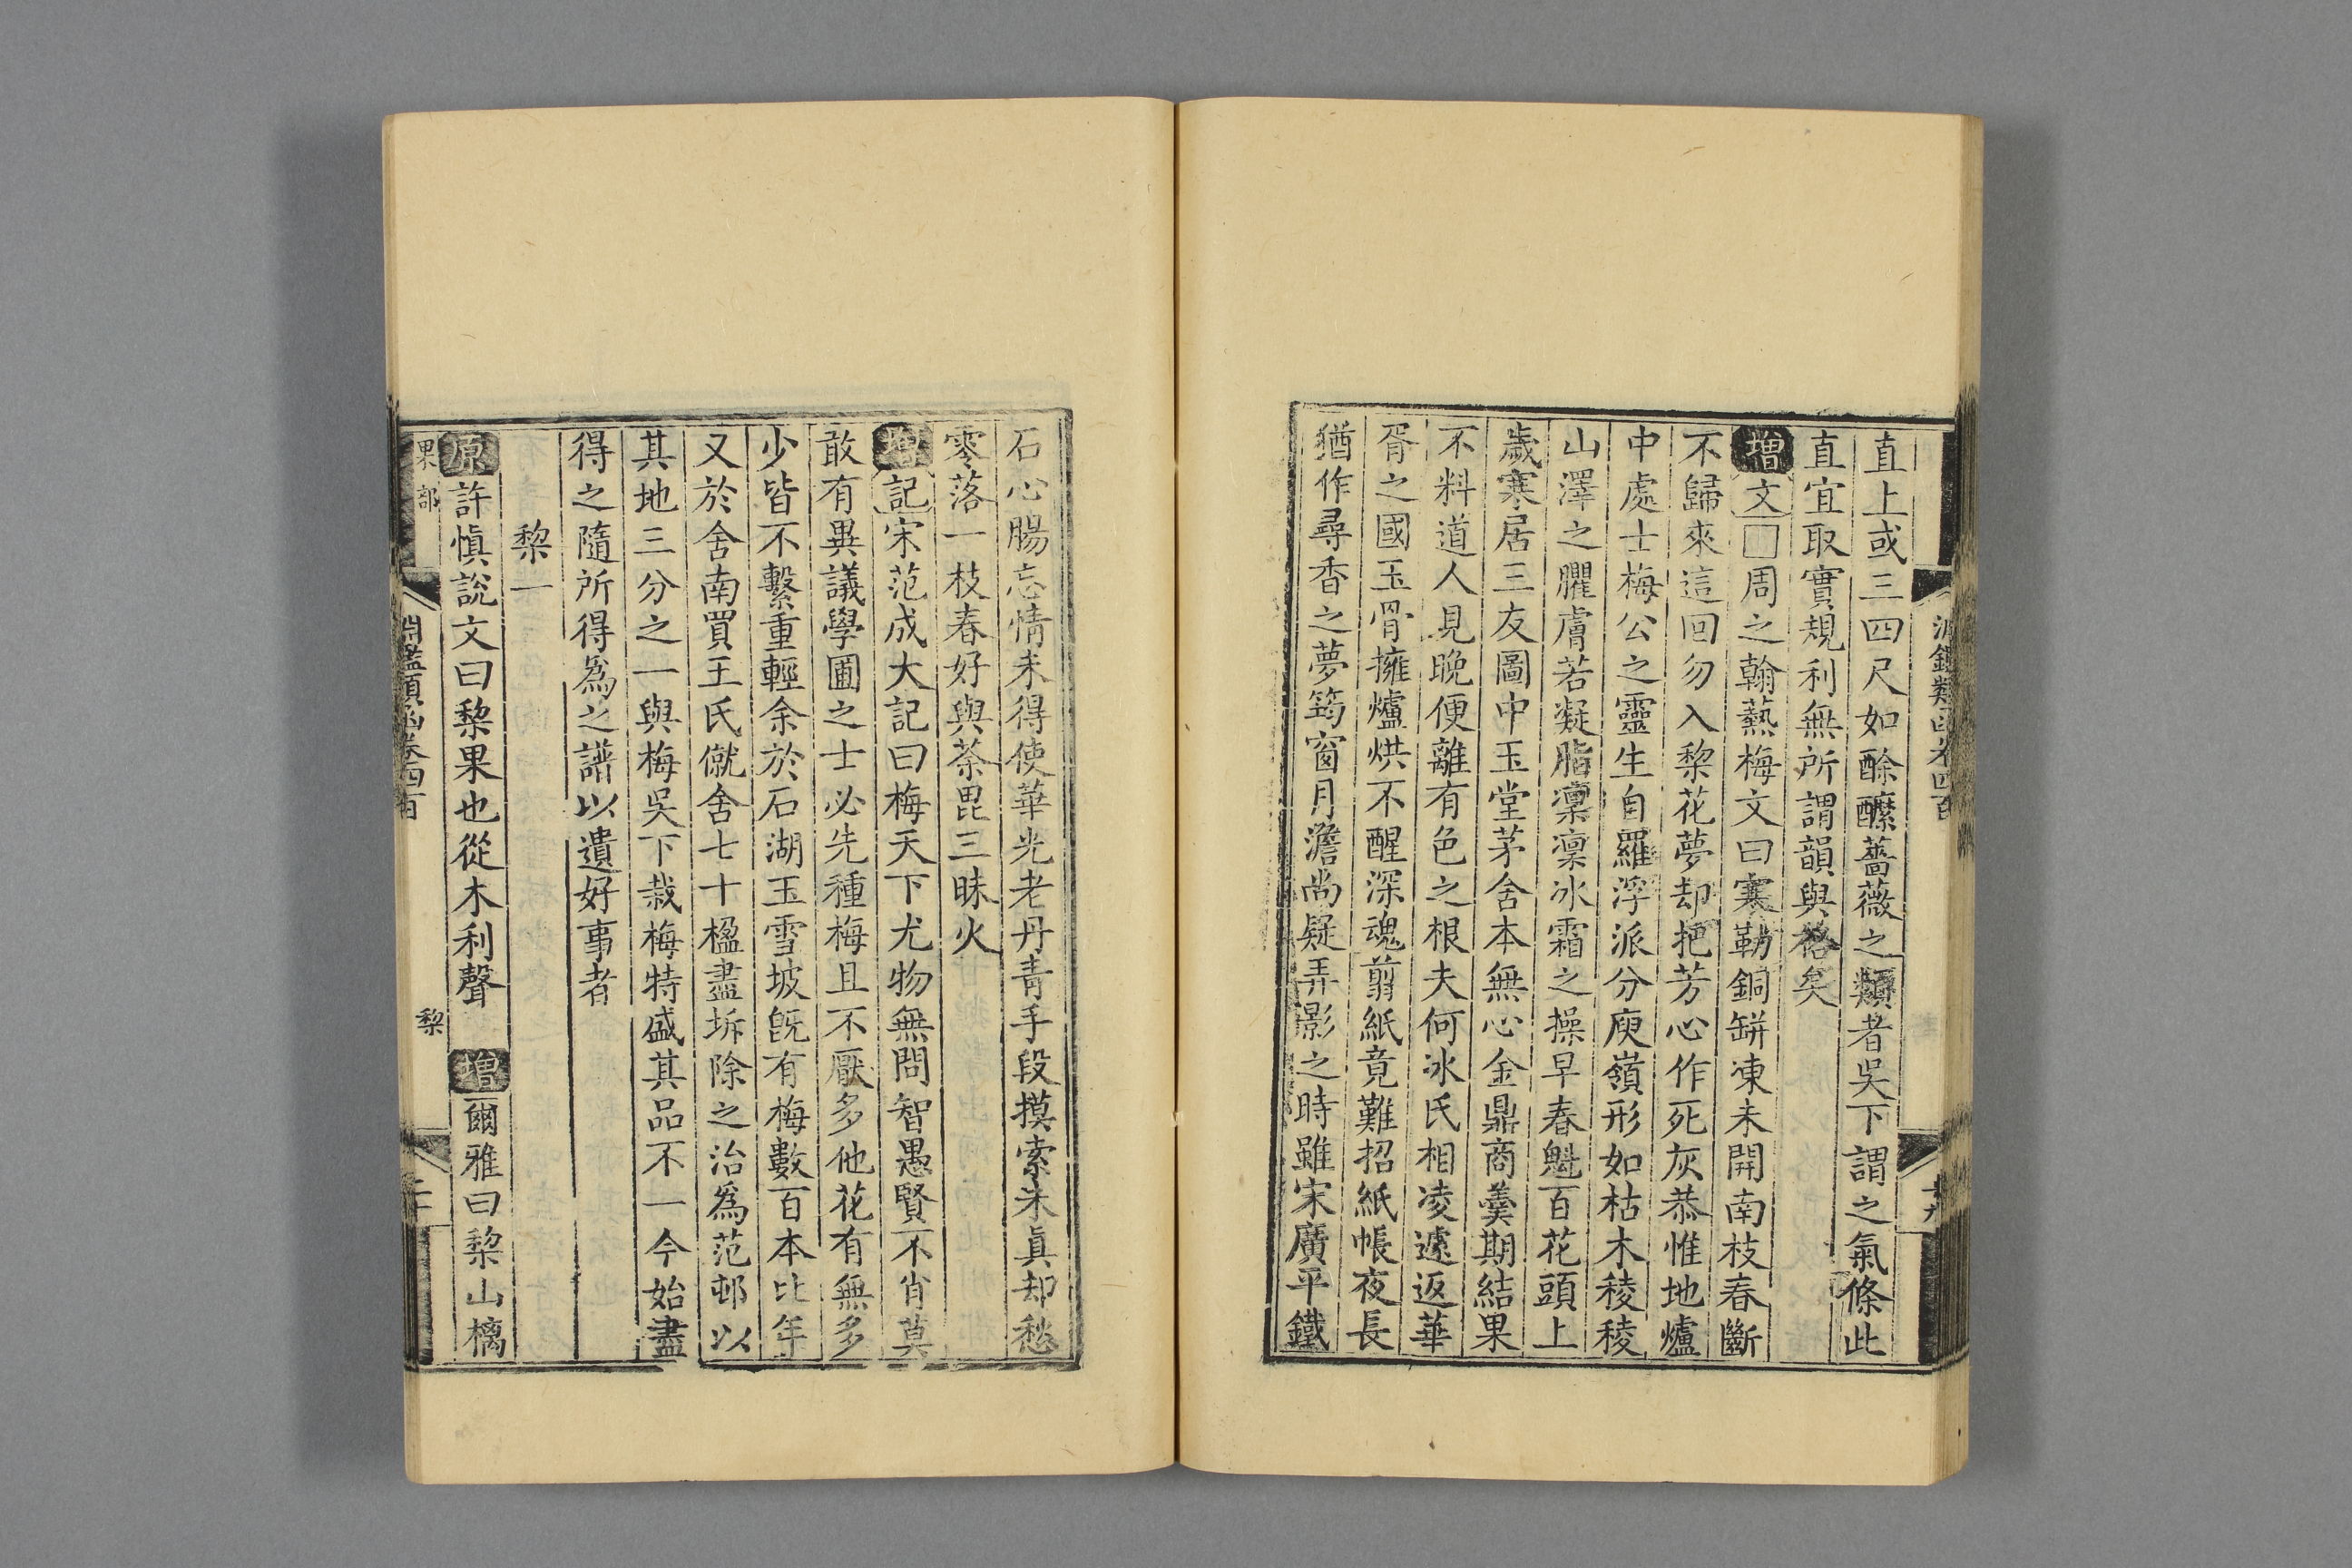 直上或三四尺如酴醿薔薇之類者吳下謂之氣條此
直宜取實規利無所謂韻與格矣
增文□周之翰爇梅文曰寒勒銅缾凍未開南枝春斷
不歸來這回勿入梨花夢却把芳心作死灰恭惟地爐
中處士梅公之靈生自羅浮派分庾嶺形如枯木稜稜
山澤之臞膚若凝脂凜凜冰霜之操早春魁百花頭上
歲寒居三友圖中玉堂茅舍本無心金鼎商羹期結果
不料道人見晚便離有色之根夫何冰氏相凌遽返華
胥之國玉骨擁爐烘不醒深魂剪紙竟難招紙帳夜長
猶作尋香之夢筠窗月澹尚疑弄影之時雖宋廣平鐵
石心腸忘情未得使華光老丹青手段摸索未眞却愁
零落一枝春好與荼毘三昧火
增記宋范成大記曰梅天下尤物無問智愚賢不肖莫
敢有異議學圃之士必先種梅且不厭多他花有無多
少皆不繫重輕余於石湖玉雪坡旣有梅數百本比年
又於舍南買王氏僦舍七十楹盡坼除之治爲范邨以
其地三分之一與梅吳下栽梅特盛其品不一今始盡
得之隨所得爲之譜以遺好事者
梨一
原許慎說文曰梨果也從木利聲　增爾雅曰梨山樆
果部
淵鑑類函卷四百
梨